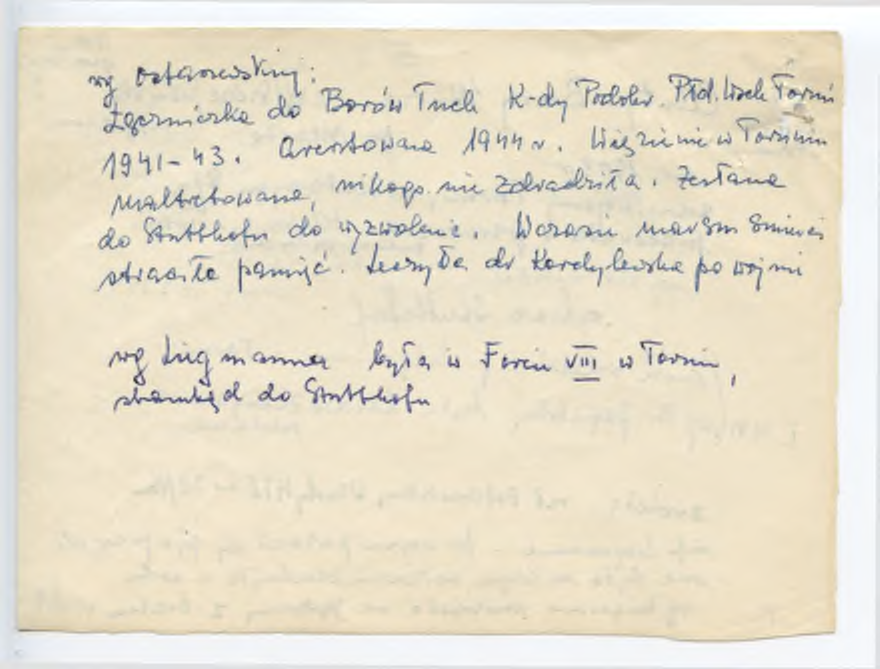 wg Ostaszewskiej:
Łączniczka do Borów Tuch K-dy Podokr. Płd. Wsch Toruń
1941-43. Aresztowana 1944 r. Więzienie w Toruniu
Maltretowana, nikogo nie zdradziła. Zesłana
do Stutthofu do wyzwolenia. W czasie marszu śmierci
straciła pamięć. Leczyła dr Kordylewska po wojnie
wg była w Forcie VIII w Toruniu,
stamtąd do Stutthofu